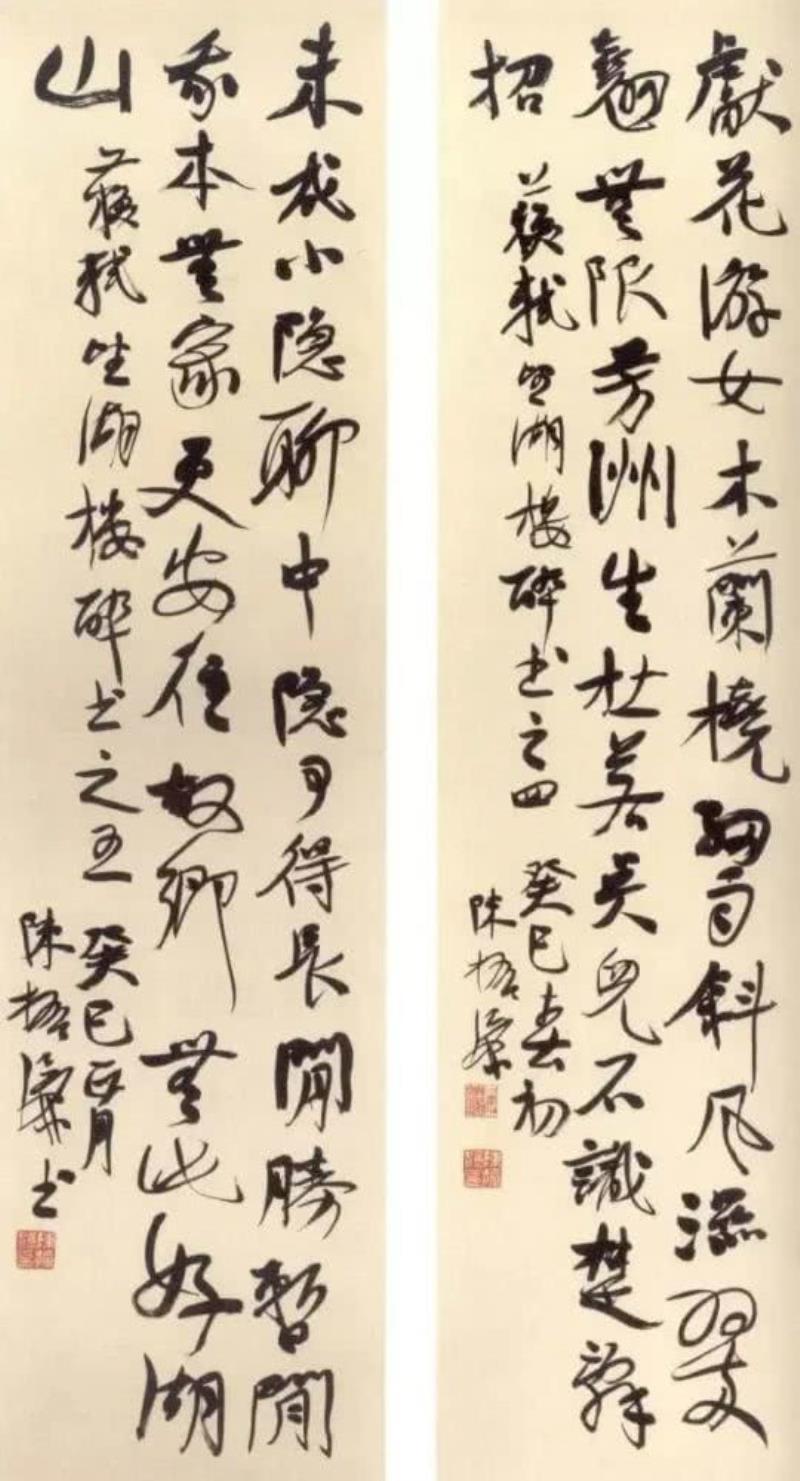 獻花游女木蘭橈細雨斜風濕翠
翹無限芳洲生杜若吳兒不識楚辭
招 蘇軾望湖樓醉书之四 癸巳春初
陳振濂
未成小隐聊中隐可得長閒勝暫閒
我本無家更安往故鄉無此好湖
山 蘇軾望湖樓醉书之五 癸巳正月
陳振濂书